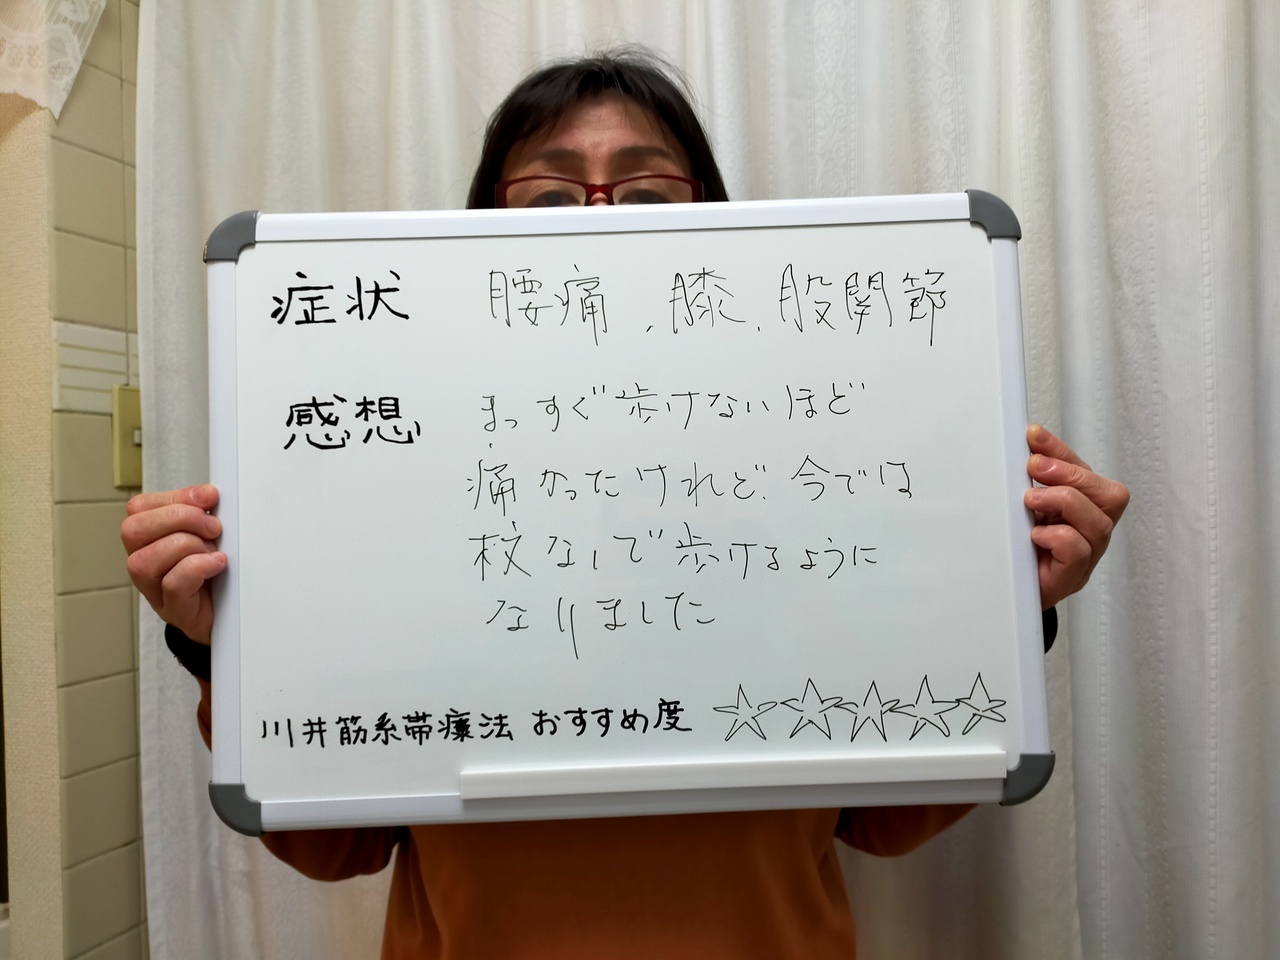 症状 腰痛、膝、股関節
感想 まっすぐ歩けないほど
痛かったけれど、今では
杖なしで歩けるように
なりました
川井筋系帯療法 おすすめ度 ☆☆☆☆☆